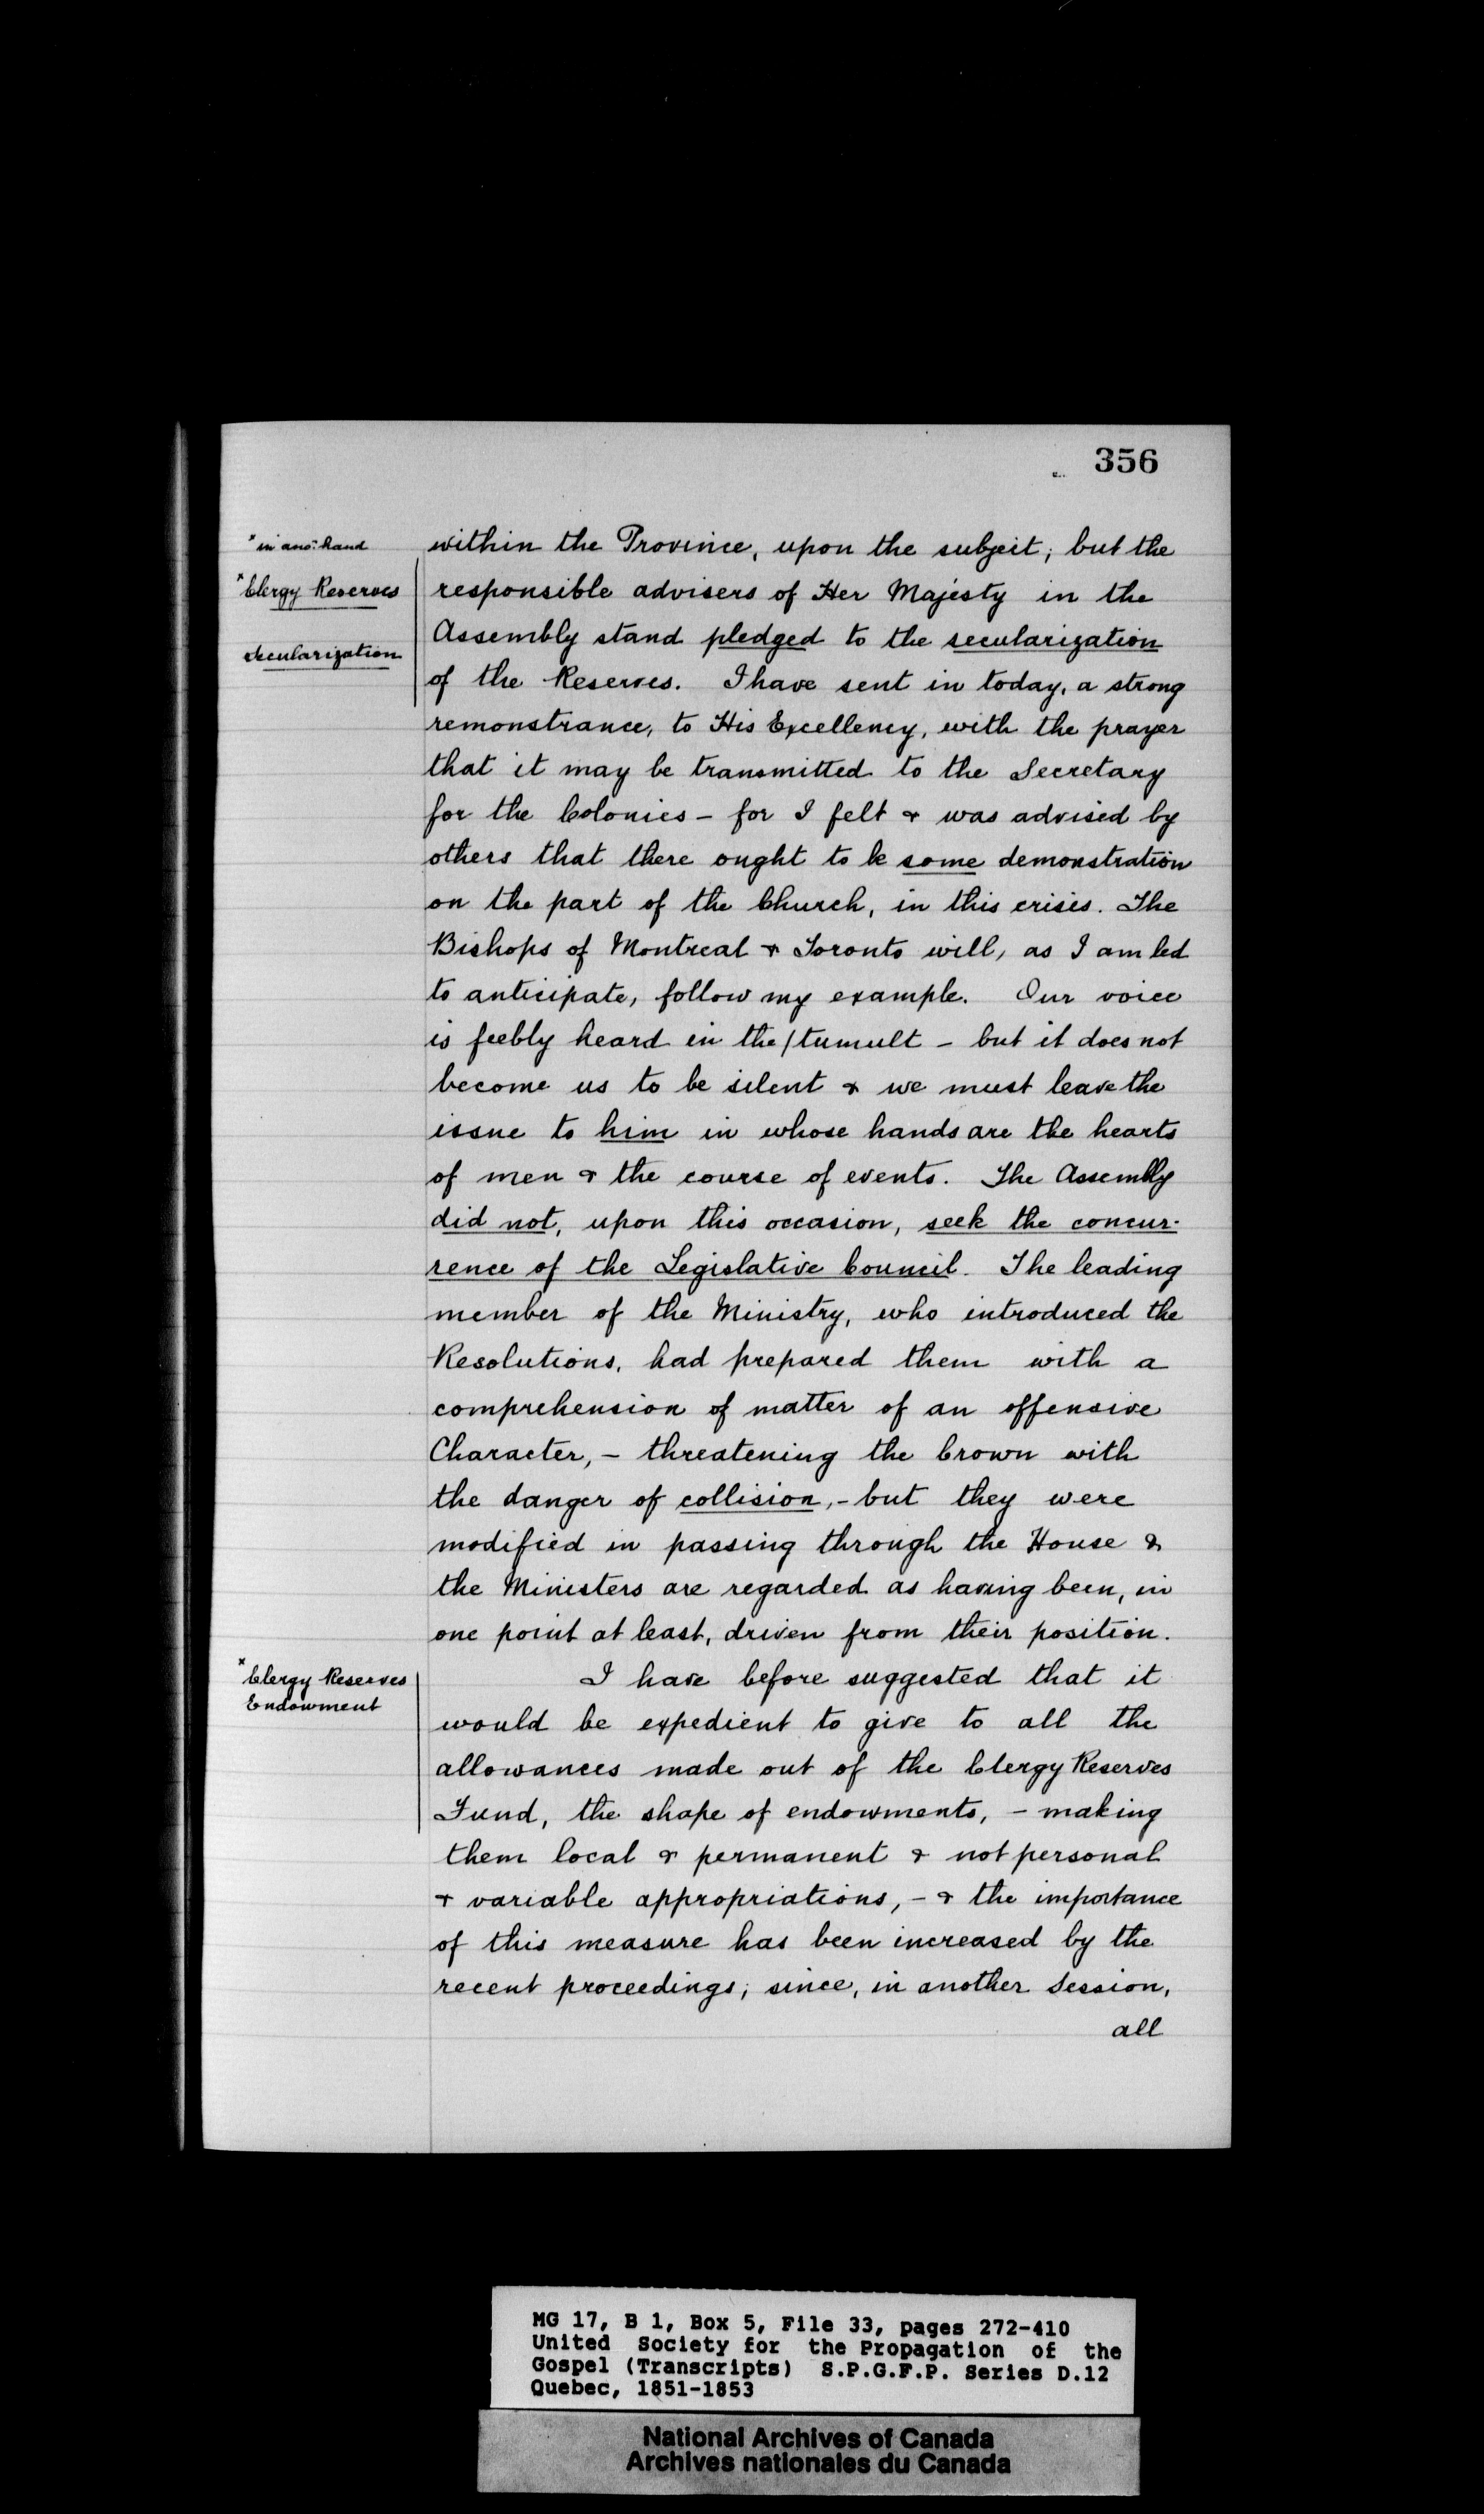 356
* in ano: hand
* Clergy Reserves
secularization
within the Province, upon the subject; but the
responsible advisers of Her Majesty in the
Assembly stand pledged to the secularization
of the Reserves. I have sent in today, a strong
remonstrance, to His Excellency, with the prayer
that it may be transmitted to the Secretary
for the Colonies - for I felt & was advised by
others that there ought to be some demonstration
on the part of the Church, in this crisis. The
Bishops of Montreal & Toronto will, as I am led
to anticipate, follow my example. Our voice
is feebly heard in the / tumult - but it does not
become us to be silent & we must leave the
issue to him in whose hands are the hearts
of men & the course of events. The Assembly
did not, upon this occasion, seek the concur-
rence of the Legislative Council. The leading
member of the Ministry, who introduced the
Resolutions, had prepared them with a
comprehension of matter of an offensive
Character, - threatening the Crown with
the danger of collision, - but they were
modified in passing through the House &
the Ministers are regarded as having been, in
one point at least, driven from their position.
* Clergy Reserves
Endowment
I have before suggested that it
would be expedient to give to all the
allowances made out of the Clergy Reserves
Fund, the shape of endowments, - making
them local & permanent & not personal
& variable appropriations, - & the importance
of this measure has been increased by the
recent proceedings; since, in another Session,
all
MG 17, B 1, Box 5, File 33, pages 272-410
United Society for the Propagation of the
Gospel (Transcripts) S.P.G.F.P. Series D.12
Quebec, 1851-1853
National Archives of Canada
Archives nationales du Canada